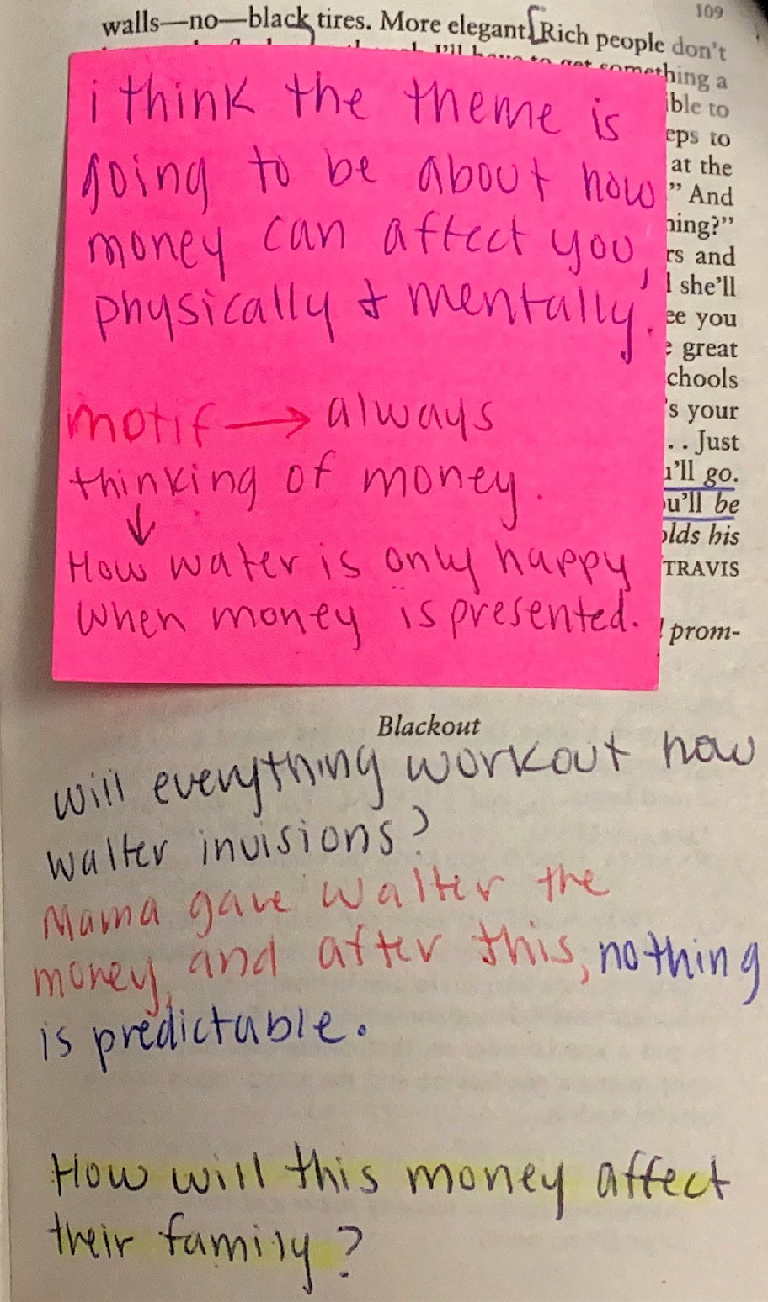 109
walls—no—black tires. More elegant. Rich people don't
something a
ible to
eps to
at the
" And
ning?"
rs and
l she'll
ee you
great
chools
's your
. . Just
'll go.
u'll be
olds his
TRAVIS
prom-
i think the theme is
going to be about how
money can affect you,
physically & mentally.
motif → always
thinking of money.
↓
How water is only happy
when money is presented.
Blackout
will everything workout how
walter invisions?
Mama gave walter the
money, and after this, nothing
is predictable.
How will this money affect
their family?